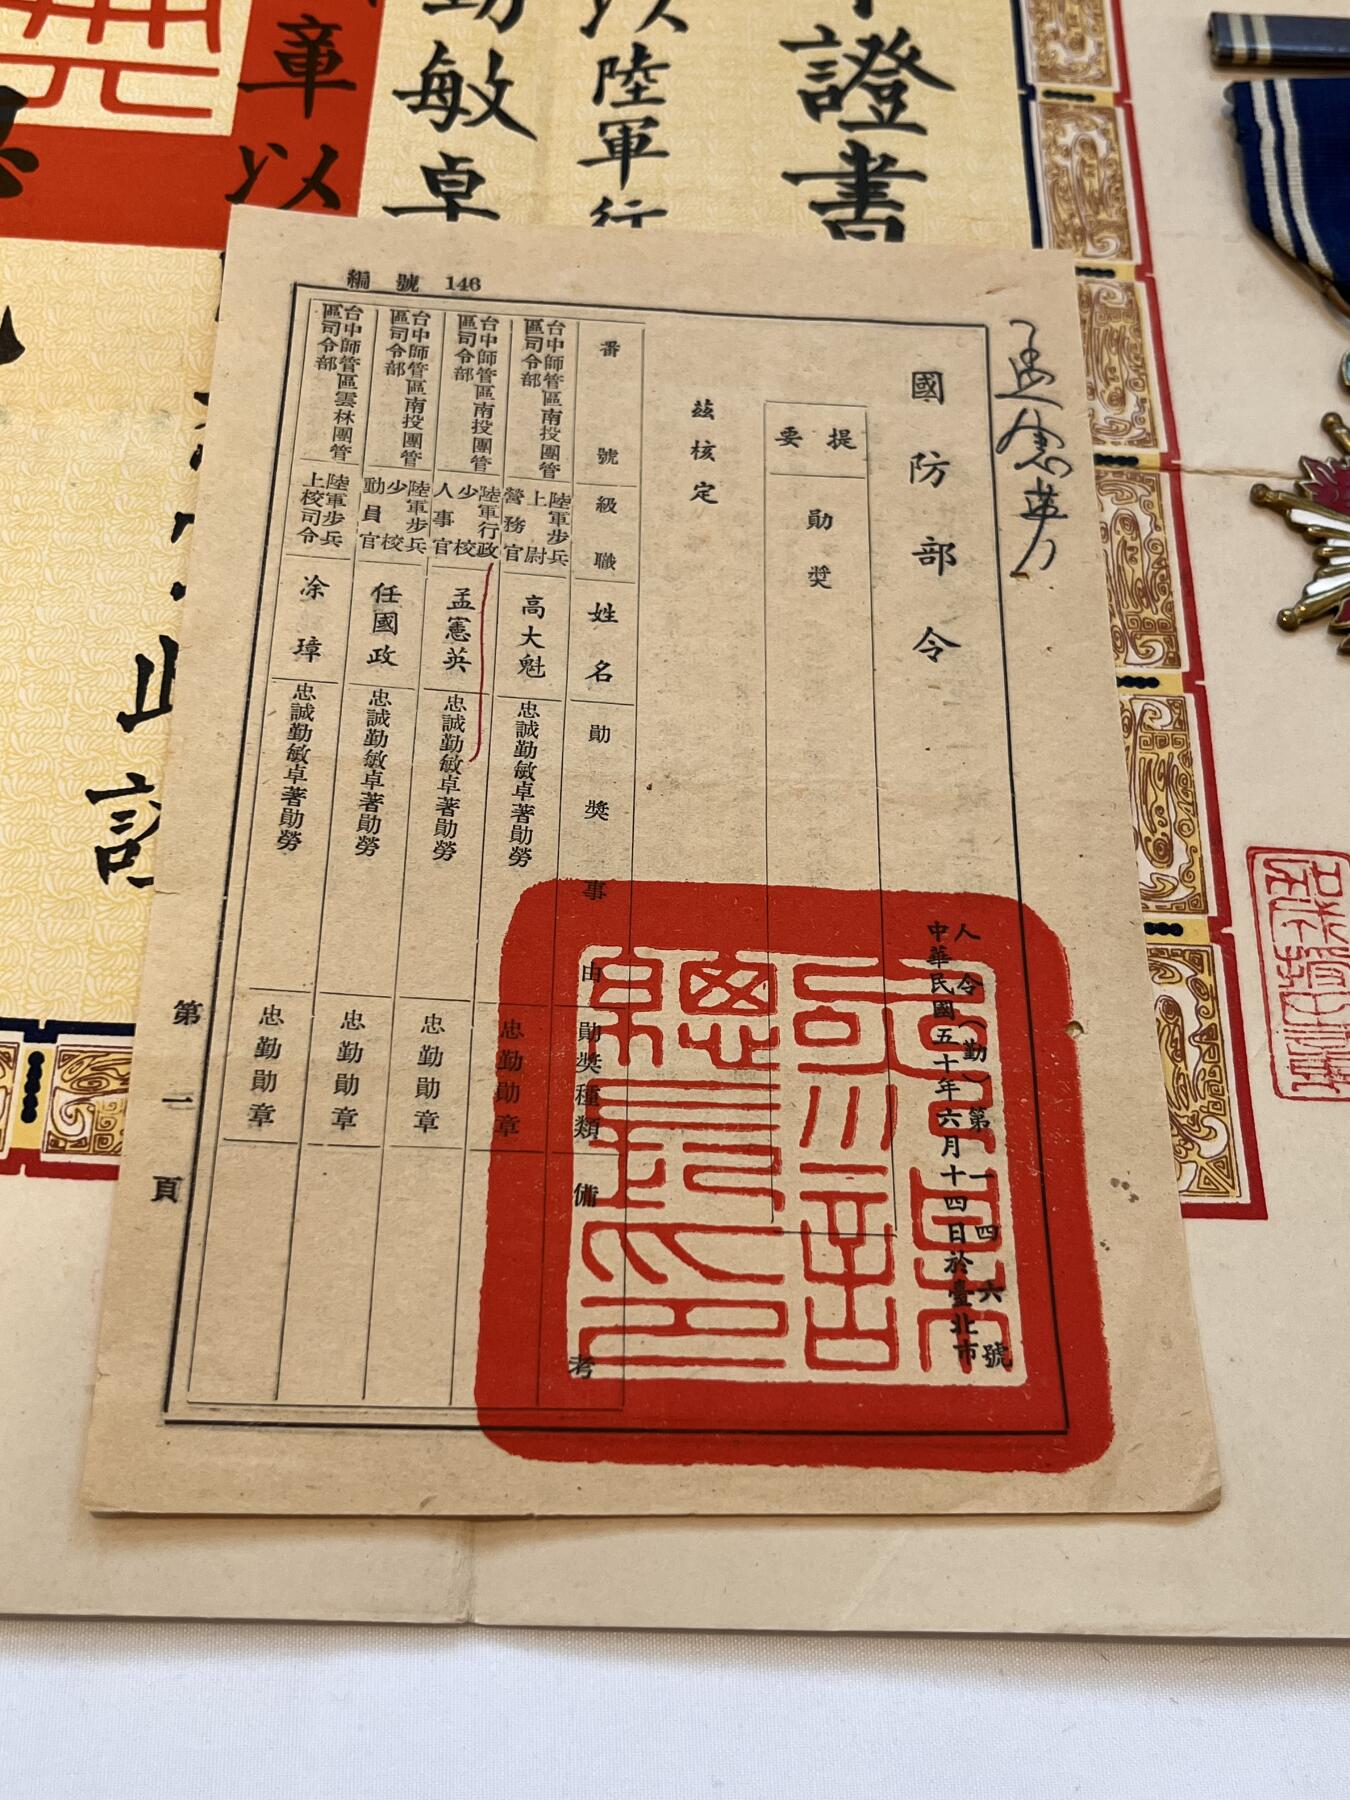 證書
以陸軍行
勤敏卓
章以
此證
孟憲英
國防部令
人令(勤)第一四六號
中華民國五十年六月十四日於臺北市
提要
勛獎
茲核定
番號
級職
姓名
勛獎事由
勛獎種類
備考
台中師管區南投團管區司令部
陸軍步兵上尉營務官
高大魁
忠誠勤敏卓著勛勞
忠勤勛章
台中師管區南投團管區司令部
陸軍行政少校人事官
孟憲英
忠誠勤敏卓著勛勞
忠勤勛章
台中師管區南投團管區司令部
陸軍步兵少校動員官
任國政
忠誠勤敏卓著勛勞
忠勤勛章
台中師管區雲林團管區司令部
陸軍步兵上校司令
涂璋
忠誠勤敏卓著勛勞
忠勤勛章
編號 146
第一頁